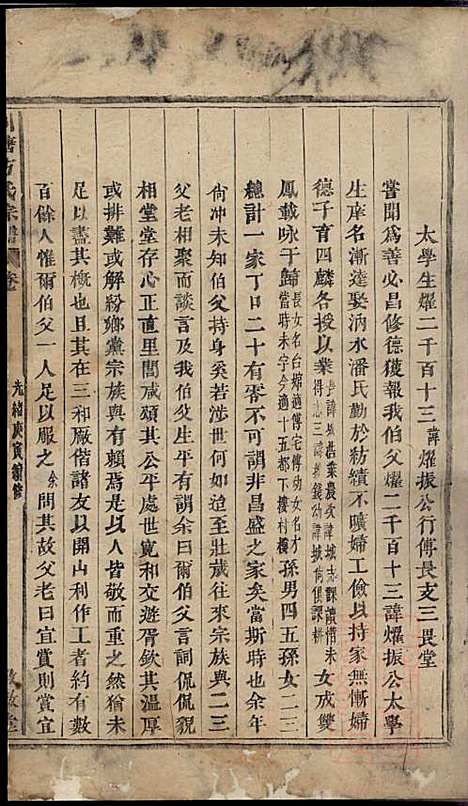 太學生燿二千百十三諱燿振公行傳長支三畏堂
嘗聞為善必昌修德獲報我伯父燿二千百十三諱燿振公太學
生庠名漸達娶汭水潘氏勤於紡績不曠婦工儉以持家無慚婦
德子育四麟各授以業長諱城揩業農次諱城志課讀惜未得志三諱城錢幼諱城倘俱課耕女成雙
鳳載咏于歸長女名台嫦適傅宅幼女名才當時未字今適十五都下樓村樓孫男四五孫女一二
總計一家丁口二十有零不可謂非昌盛之家矣當斯時也余年
尙冲未知伯父持身奚若涉世何如迨至壯歲往來宗族與二三
父老相聚而談言及我伯父生平有謂余曰爾伯父言詞侃侃貌
相堂堂存心正直里閭咸頌其公平處世寬和交遊胥欽其溫厚
或排難或解紛鄉黨宗族與有賴焉是以人皆敬而重之然猶未
足以盡其概也且其在三和廠偕諸友以開山利作工者約有數
百餘人惟爾伯父一人足以服之余問其故父老曰宜賞則賞宜
氏宗譜
卷
光緒庚寅續修
敘堂